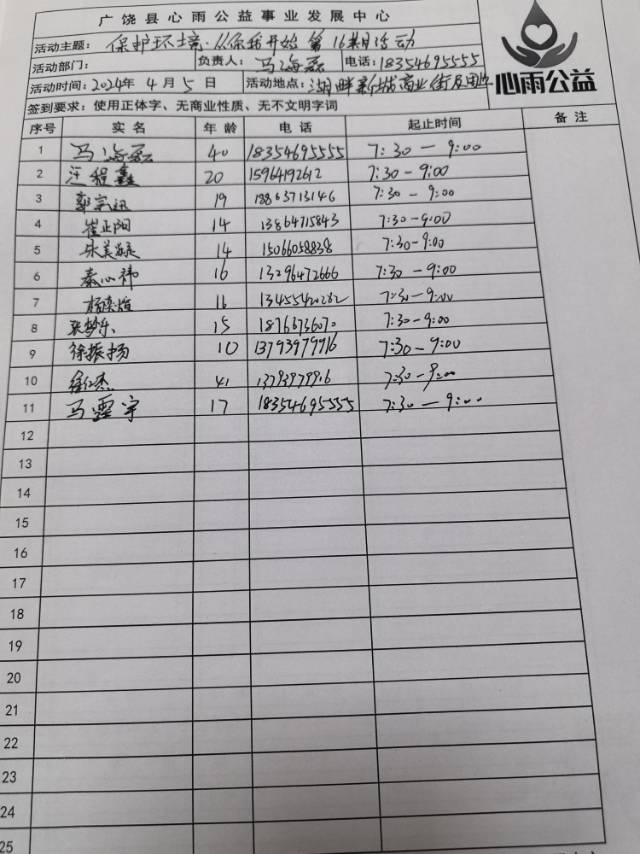 广饶县心雨公益事业发展中心
活动主题：保护环境·从你我开始 第16期活动
活动部门： 负责人：马海磊 电话：18354695555
活动时间：2024年 4月 5日 活动地点：湖畔新城商业街及周边
心雨公益
签到要求：使用正体字、无商业性质、无不文明字词
序号 实名 年龄 电话 起止时间 备注
1 马海磊 40 18354695555 7:30—9:00
2 汪程鑫 20 15964192612 7:30-9:00
3 19 18865713146 7:30-9:00
4 崔正阳 14 13864715843 7:30-9:00
5 14 15066058838 7:30-9:00
6 秦心祎 16 13296472666 7:30-9:00
7 16 13455420282 7:30-9:00
8 张梦乐 15 18766736070 7:30-9:00
9 徐振扬 10 13793979916 7:30-9:00
10 41 13793979916 7:30-9:00
11 马雪宇 17 18354695555 7:30—9:00
12
13
14
15
16
17
18
19
20
21
22
23
24
25